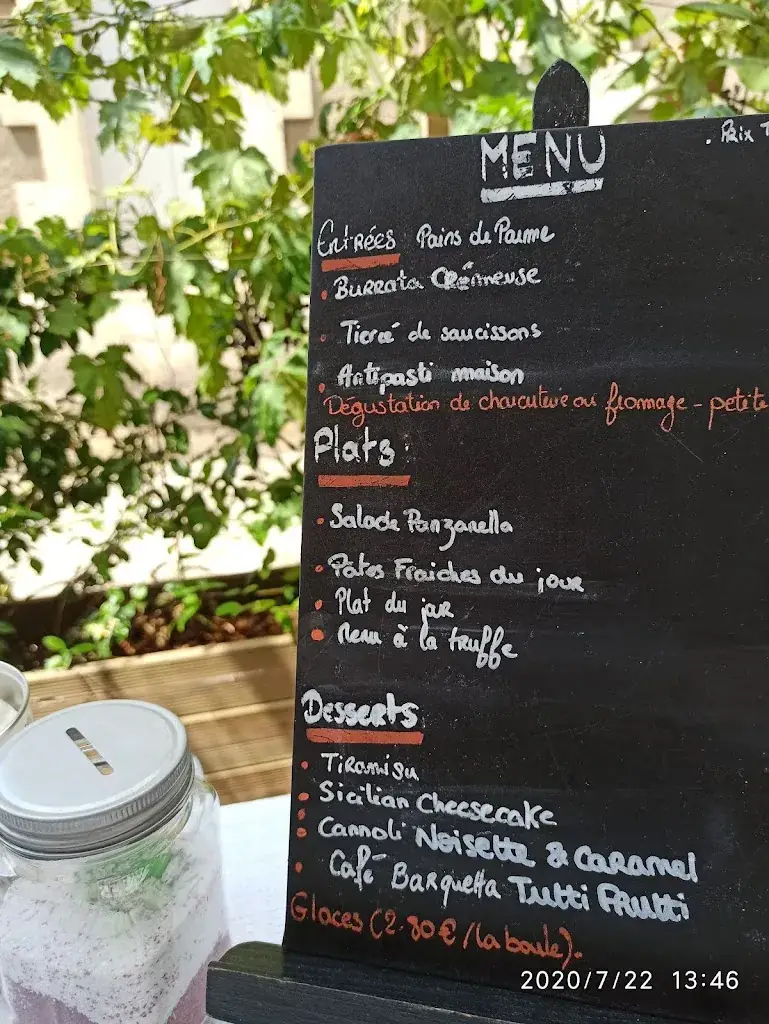 MENU
. Prix T
Entrées Pains de Paume
. Burrata Crémeuse
. Tiercé de saucissons
. Antipasti maison
Dégustation de charcuterie ou fromage - petite
Plats :
. Salade Panzanella
. Pates Fraiches du jour
. Plat du jour
. Menu à la truffe
Desserts
. Tiramisu
. Sicilian Cheesecake
. Cannoli Noisette & Caramel
. Café Barquetta Tutti Frutti
Glaces (2.80€/la boule).
2020/7/22 13:46